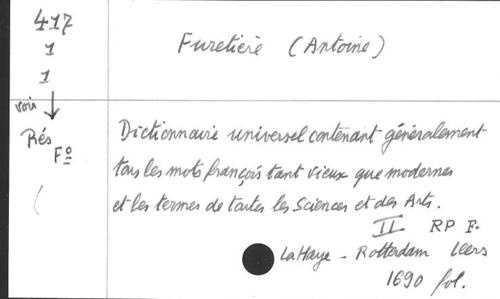 417
1
1
voir
Rés
Fº
Furetière (Antoine)
Dictionnaire universel contenant généralement
tous les mots françois tant vieux que modernes
et les termes de toutes les Sciences et des Arts.
II RP F.
La Haye - Rotterdam Leers
1690 fol.